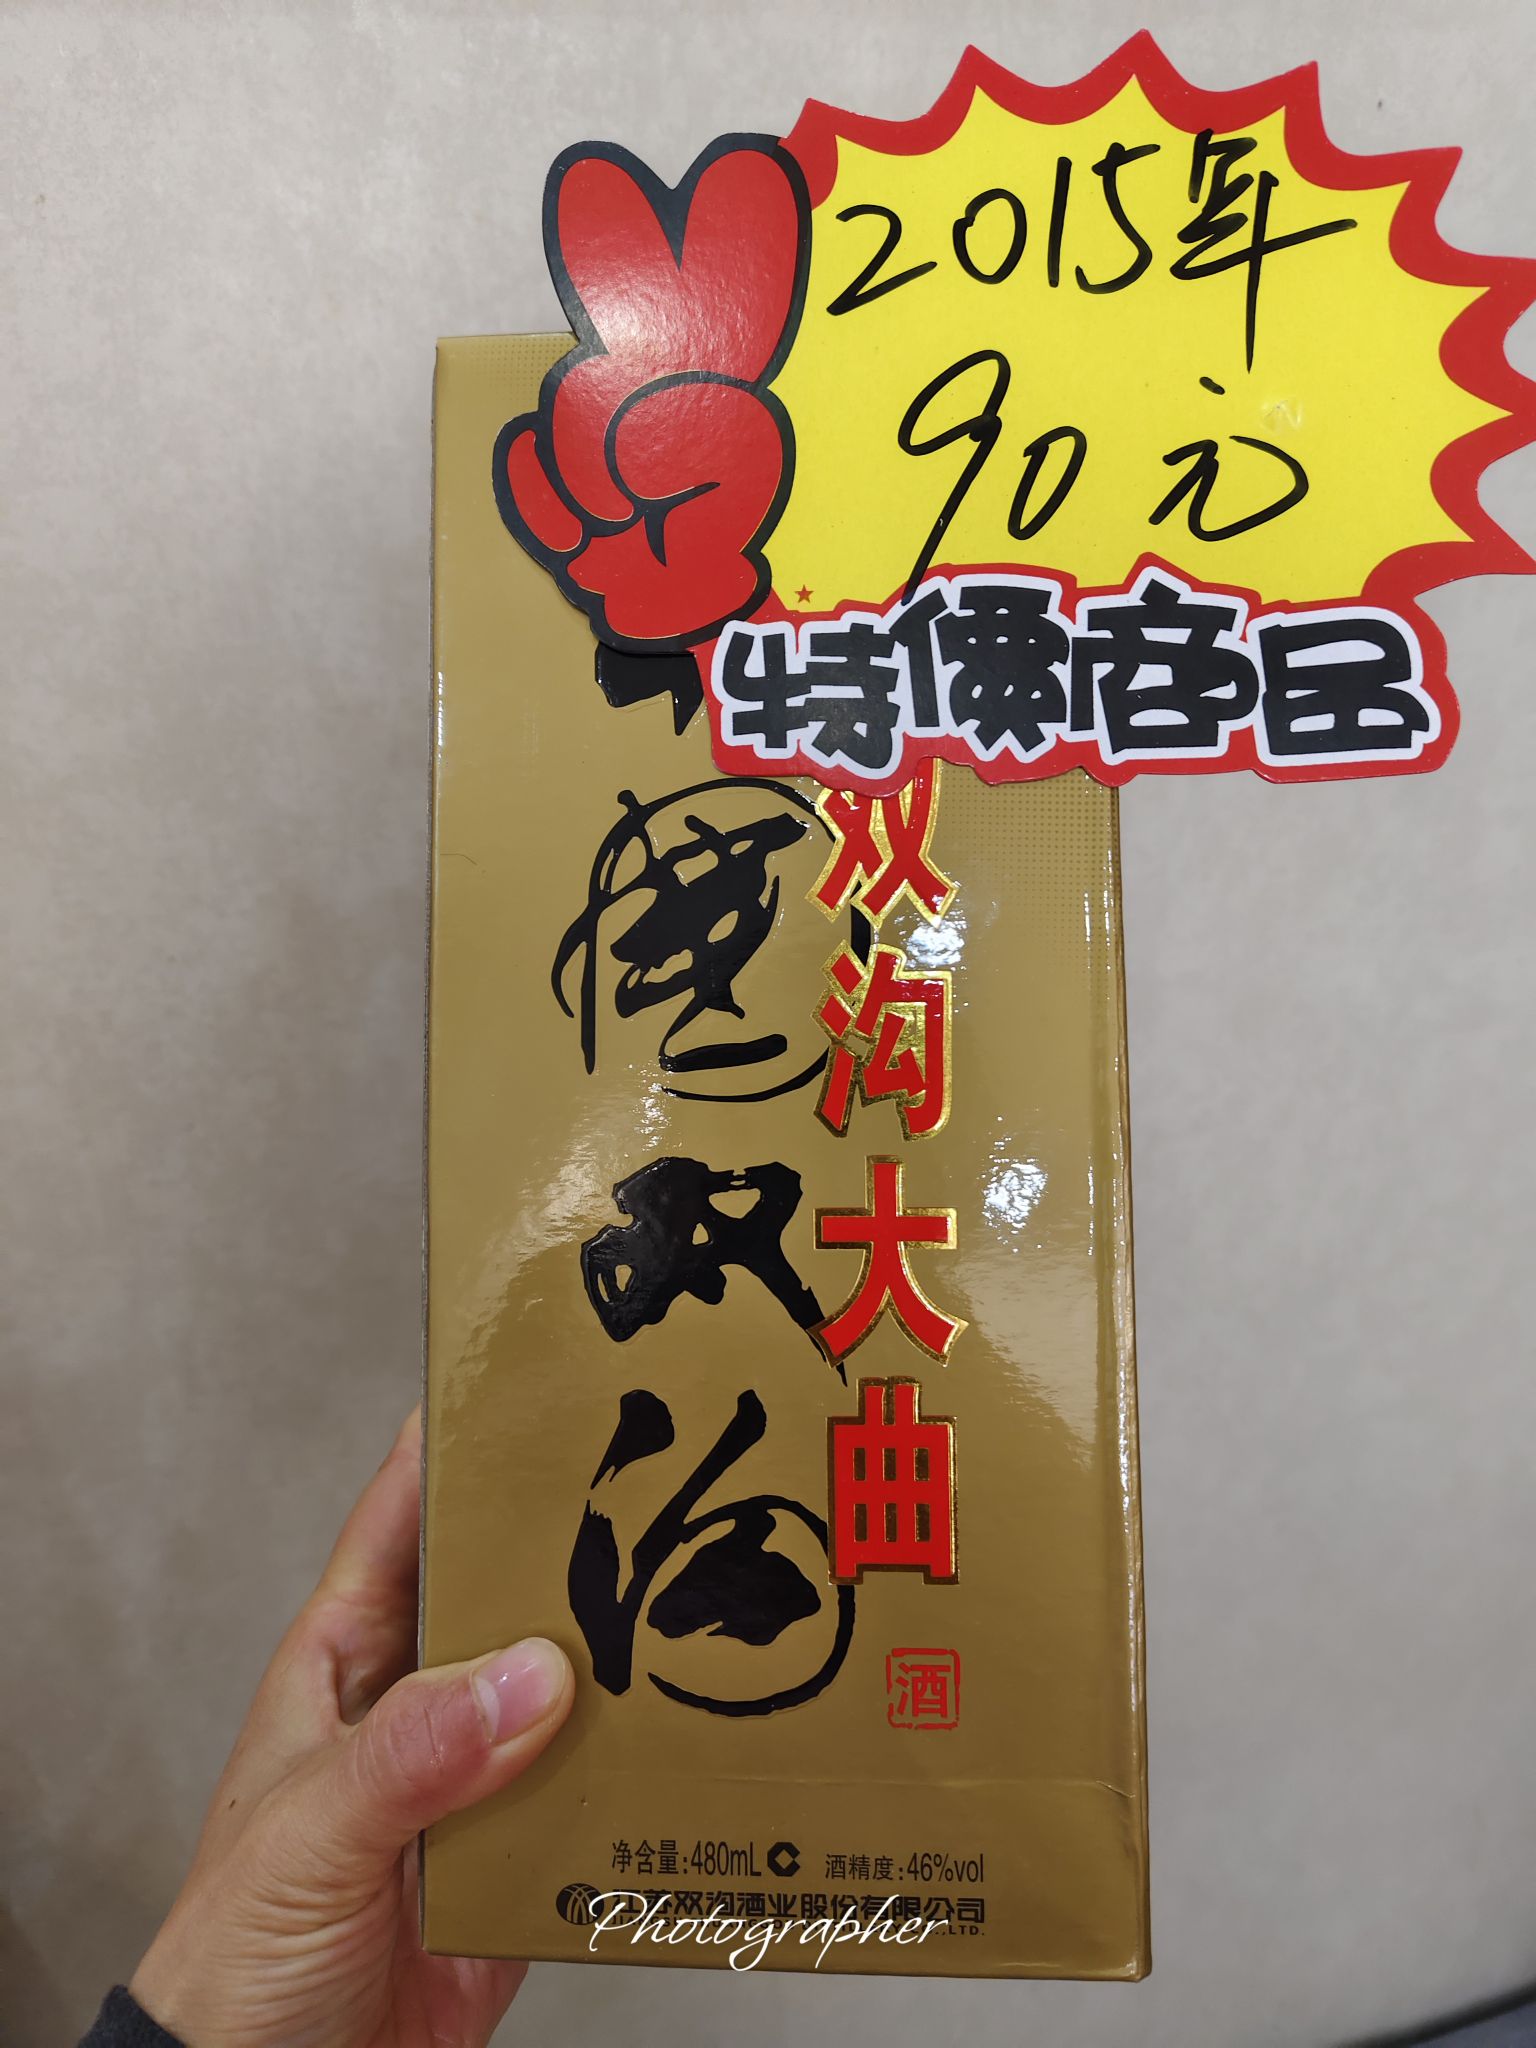 2015年
90元
特價商品
双沟大曲
双沟
酒
净含量:480mL 酒精度:46%vol
江苏双沟酒业股份有限公司
Photographer